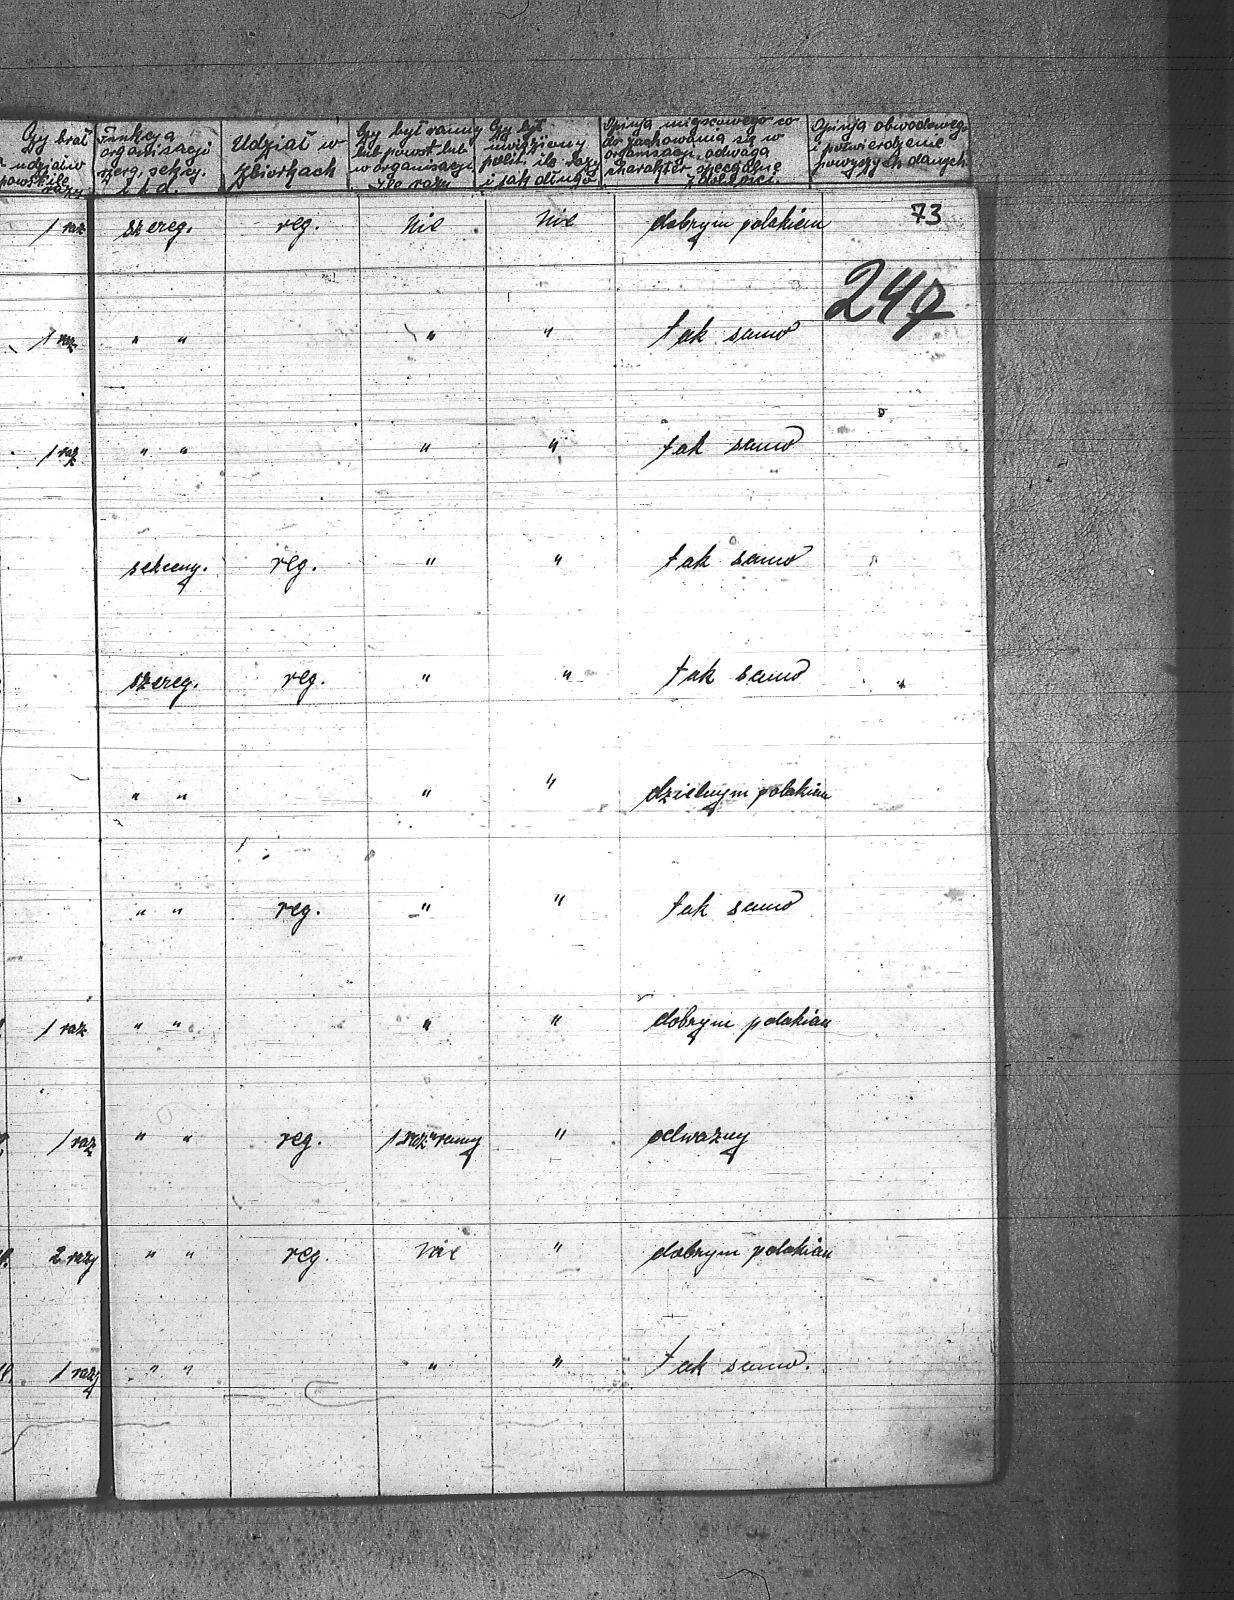 Czy brał udział w powst. ile razy
Funkcja organizacji szereg. sekcy. i t. d.
Udział w zbiorkach
Czy był ranny lub powst. lub w organizacji ile razy
Czy był więziony polit. ile razy i jak długo
Opinja miejscowego co do zachowania się w organizacji, odwaga charakter specjalne zdolności
Opinja obwodowego i potwierdzenie powyższych danych
1 raz szereg. reg. nie nie dobrym polakiem 73
247
1 raz " " " " tak samo
1 raz " " " " tak samo
sekcny. reg. " " tak samo
szereg. reg. " " tak samo
" " " " dzielnym polakiem
" " reg. " " tak samo
1 raz " " " " dobrym polakiem
1 raz " " reg. 1 raz ranny " odważny
2 razy " " reg. nie " dobrym polakiem
1 razy " " " " tak samo.